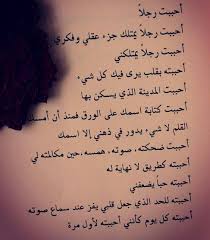 أحببت رجلاً
أحببت رجلاً يمتلك جزء عقلي وفكري
أحببت رجلاً يمتلكني
أحببته بقلب يرى فيك كل شيء
أحببت المدينة الذي يسكن بها
أحببت كتابة اسمك على الورق فمنذ أن أمسك
القلم لا شيء يدور في ذهني إلا اسمك
أحببت ضحكته، صوته، همسه، حين مكالمته لي
أحببته كطريق لا نهاية له
أحببته حباً يضعفني
أحببته للحد الذي جعل قلبي يغز عند سماع صوته
أحببته كل يوم كأنني أحببته لأول مرة